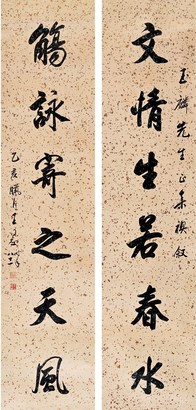 文情生若春水
玉麟先生正 集禊叙
觴詠寄之天風
乙亥臘月 王